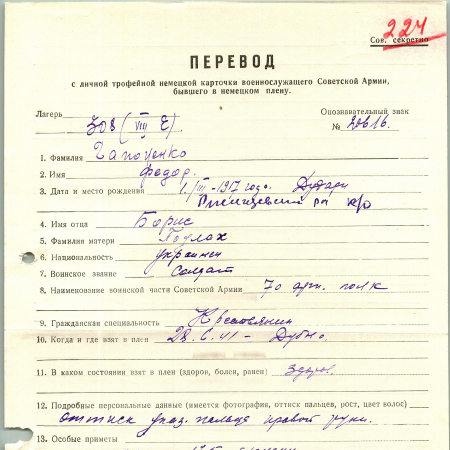 224
Сов. секретно
ПЕРЕВОД
с личной трофейной немецкой карточки военнослужащего Советской Армии,
бывшего в немецком плену.
Лагерь 308 (VIII E) Опознавательный знак
№ 20616.
1. Фамилия Гапоненко
2. Имя Федор.
3. Дата и место рождения 1./III-1917 года.
4. Имя отца Борис
5. Фамилия матери
6. Национальность украинец
7. Воинское звание Солдат
8. Наименование воинской части Советской Армии 70 арт. полк
9. Гражданская специальность Крестьянин
10. Когда и где взят в плен 28.6.41 – Дубно.
11. В каком состоянии взят в плен (здоров, болен, ранен) здоров.
12. Подробные персональные данные (имеется фотография, оттиск пальцев, рост, цвет волос)
оттиск указ. пальца правой руки.
13. Особые приметы